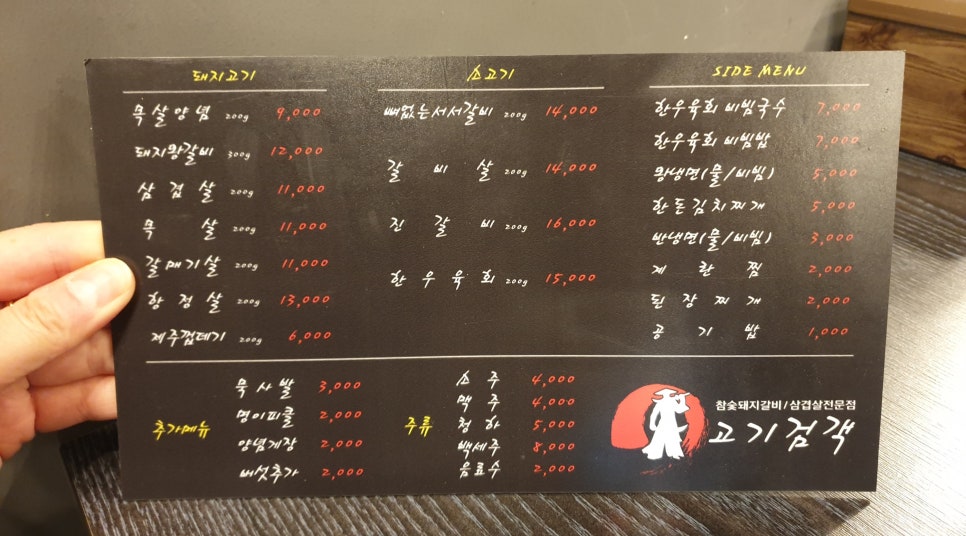 돼지고기
목살양념 200g 9,000
돼지왕갈비 300g 12,000
삼겹살 200g 11,000
목살 200g 11,000
갈매기살 200g 11,000
항정살 200g 13,000
제주껍데기 200g 6,000
소고기
뼈없는서서갈비 200g 14,000
갈비살 200g 14,000
진갈비 200g 16,000
한우육회 200g 15,000
SIDE MENU
한우육회 비빔국수 7,000
한우육회 비빔밥 7,000
왕냉면(물/비빔) 5,000
한돈김치찌개 5,000
반냉면(물/비빔) 3,000
계란찜 2,000
된장찌개 2,000
공기밥 1,000
추가메뉴
묵사발 3,000
명이피클 2,000
양념게장 2,000
버섯추가 2,000
주류
소주 4,000
맥주 4,000
청하 5,000
백세주 8,000
음료수 2,000
참숯돼지갈비/삼겹살전문점
고기검객